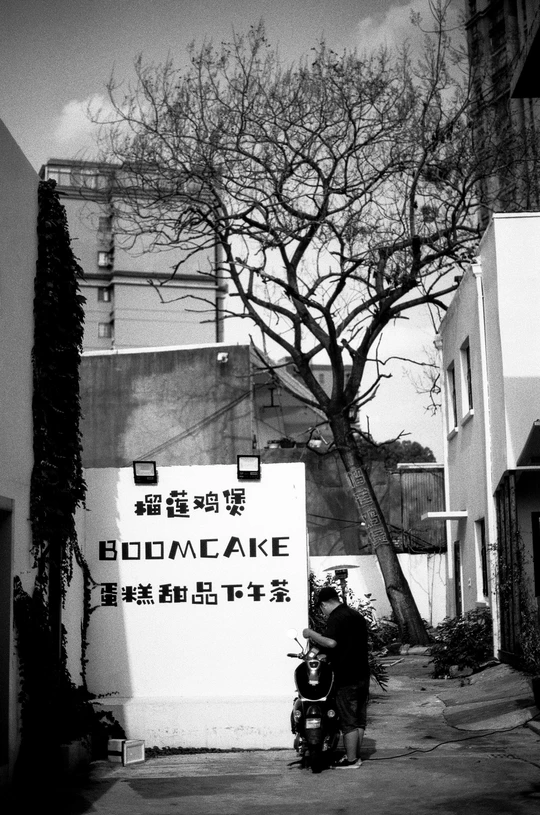 榴莲鸡煲
BOOMCAKE
蛋糕甜品下午茶